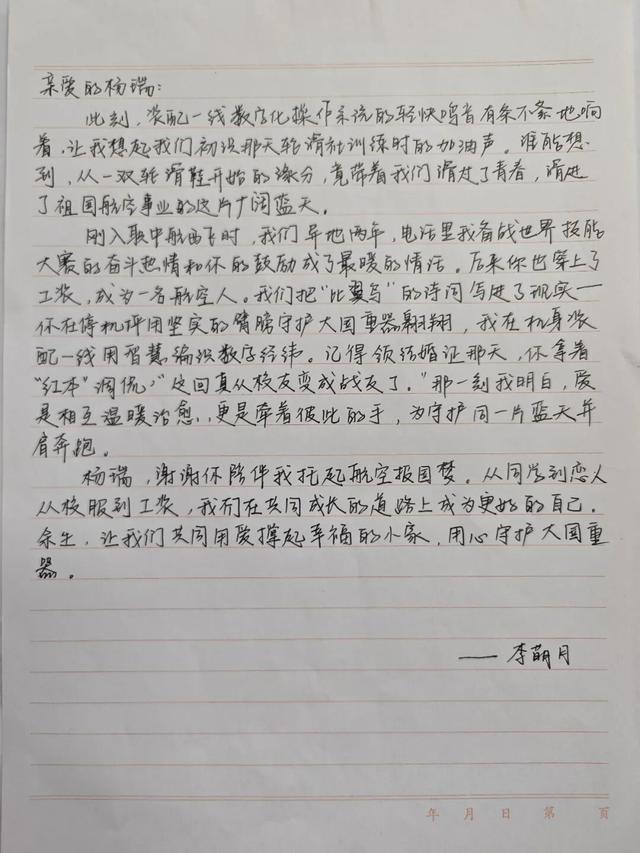 亲爱的杨瑞：
此刻，装配一线数字化操作系统的轻快鸣音有条不紊地响
着，让我想起我们初识那天轮滑社训练时的加油声。谁能想
到，从一双轮滑鞋开始的缘分，竟带着我们滑过了青春，滑进
了祖国航空事业的这片广阔蓝天。
刚入职中航西飞时，我们异地两年，电话里我备战世界技能
大赛的奋斗热情和你的鼓励成了最暖的情话。后来你也穿上了
工装，成为一名航空人。我们把“比翼鸟”的诗词写进了现实——
你在停机坪用坚实的臂膀守护大国重器翱翔，我在机身装
配一线用智慧编织数字经纬。记得领结婚证那天，你拿着
“红本”调侃：“这回真从校友变成战友了。”那一刻我明白，爱
是相互温暖治愈，更是牵着彼此的手，为守护同一片蓝天并
肩奔跑。
杨瑞，谢谢你陪伴我托起航空报国梦。从同学到恋人
从校服到工装，我们在共同成长的道路上成为更好的自己。
余生，让我们共同用爱撑起幸福的小家，用心守护大国重
器。
——李萌月
年 月 日 第 页